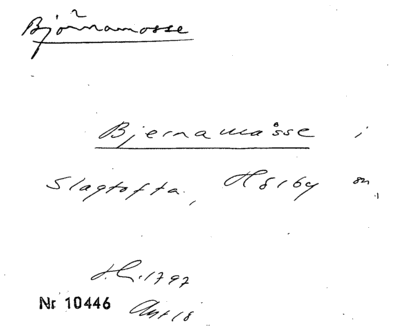 Björnamosse
Bjernamåsse i
Slagtofta, Hörby sn,
1797
Nr 10446